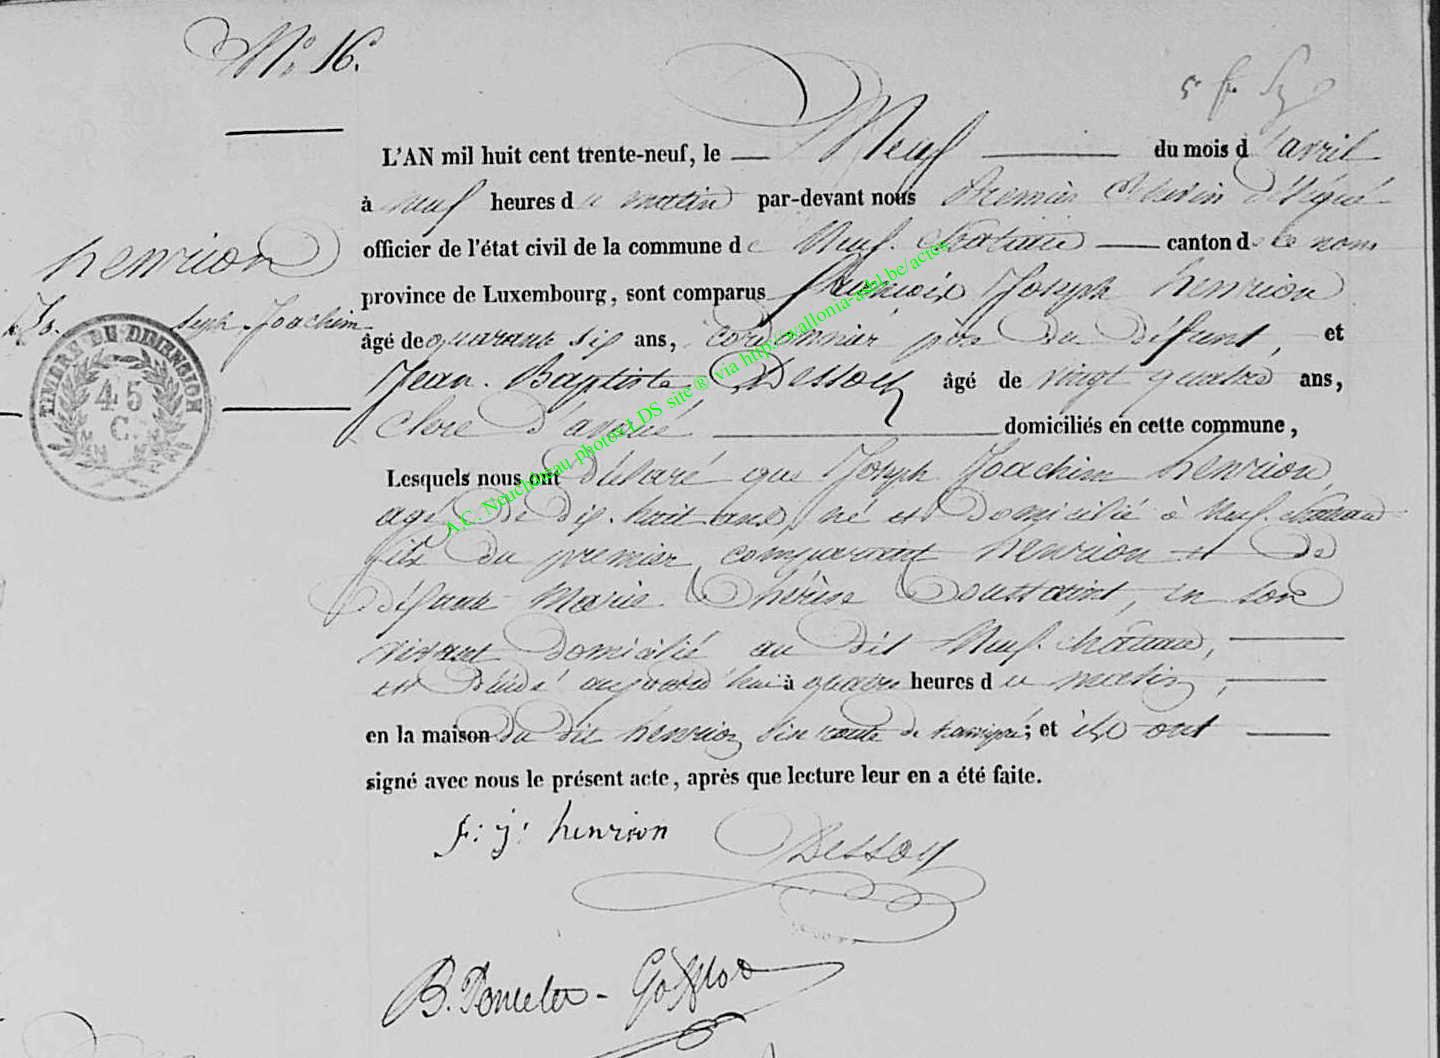 N° 16.
L'AN mil huit cent trente-neuf, le Neuf du mois d'avril
à neuf heures du matin par-devant nous Premier Echevin délégué
officier de l'état civil de la commune de Neuf-château canton de ce nom
province de Luxembourg, sont comparus François Joseph henrion
âgé de quarante six ans, cordonnier père du défunt, et
Jean-Baptiste Dessoy âgé de vingt quatre ans,
Clerc d'avoué domiciliés en cette commune,
Lesquels nous ont déclaré que Joseph Joachim henrion,
agé de dix-huit ans, né et domicilié à Neuf-château
fils du premier comparant henrion et de
défunte Marie Thérèse Toussaint, en son
vivant domicilié au dit Neuf-château,
est décédé aujourd'hui à quatre heures du matin,
en la maison du dit henrion sise route de ; et ils ont
signé avec nous le présent acte, après que lecture leur en a été faite.
f: j: henrion Dessoy
B. Poncelet - Gofflot
henrion
Joseph Joachim
TIMBRE DE DIMENSION
45
C.
A.C. Neufchâteau photos LDS site ® via http://wallonia-asbl.be/actes